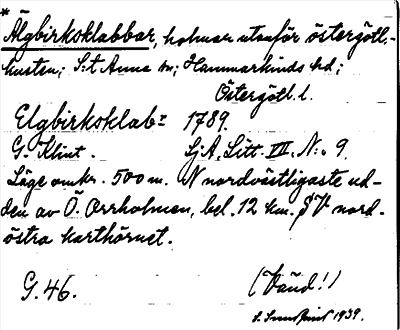 *
Älgbirkoklabbar, holmar utanför östergötl.-
kusten; S:t Anna sn; Hammarkinds hd;
Östergötl. l.
Elgbirkoklabr 1789.
G. Klint. SjA, Litt. III. N:o 9.
Läge omkr. 500 m. N nordvästligaste ud-
den av Ö. Orrholmen, bel. 12 km. SV nord-
östra karthörnet.
G. 46. (Vänd!)
1939.